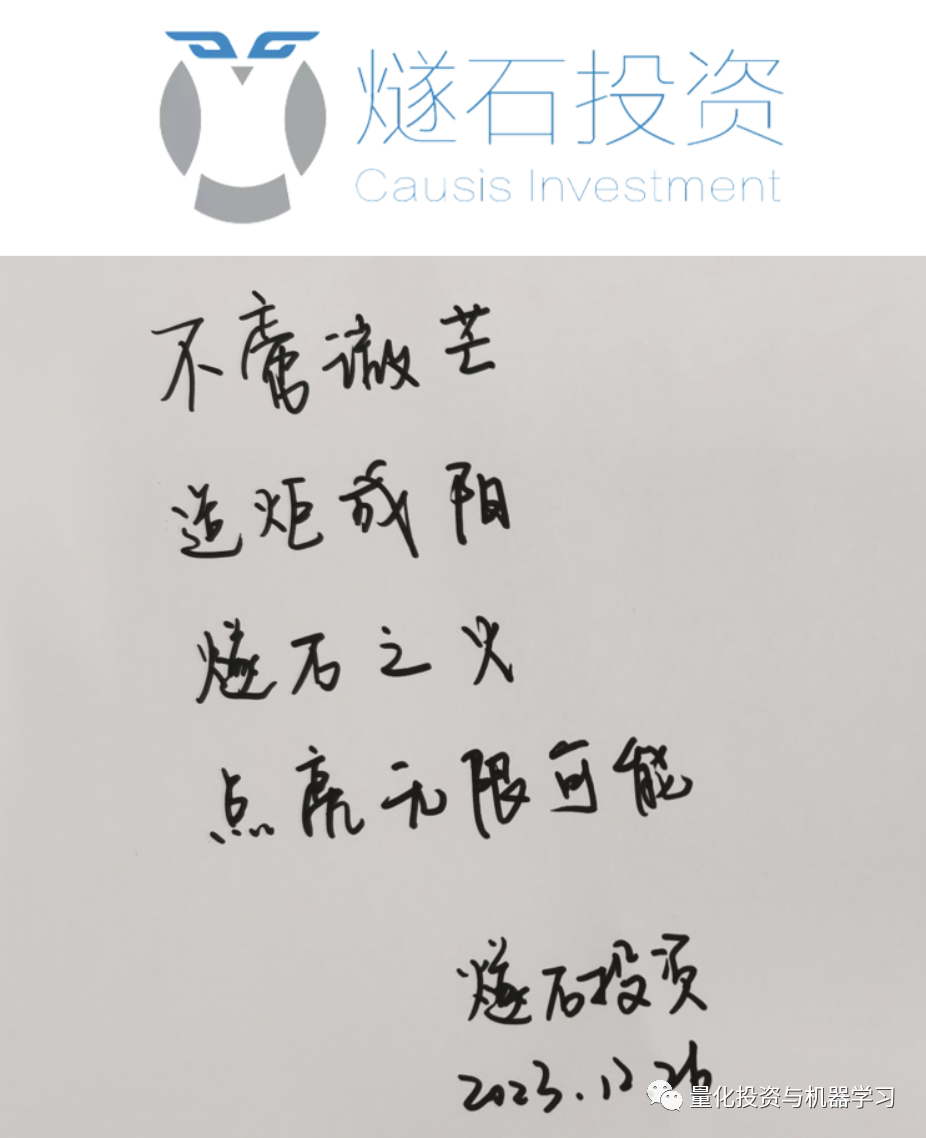 燧石投资
Causis Investment
不啻微芒
造炬成阳
燧石之火
点亮无限可能
燧石投资
2023.12.26
量化投资与机器学习